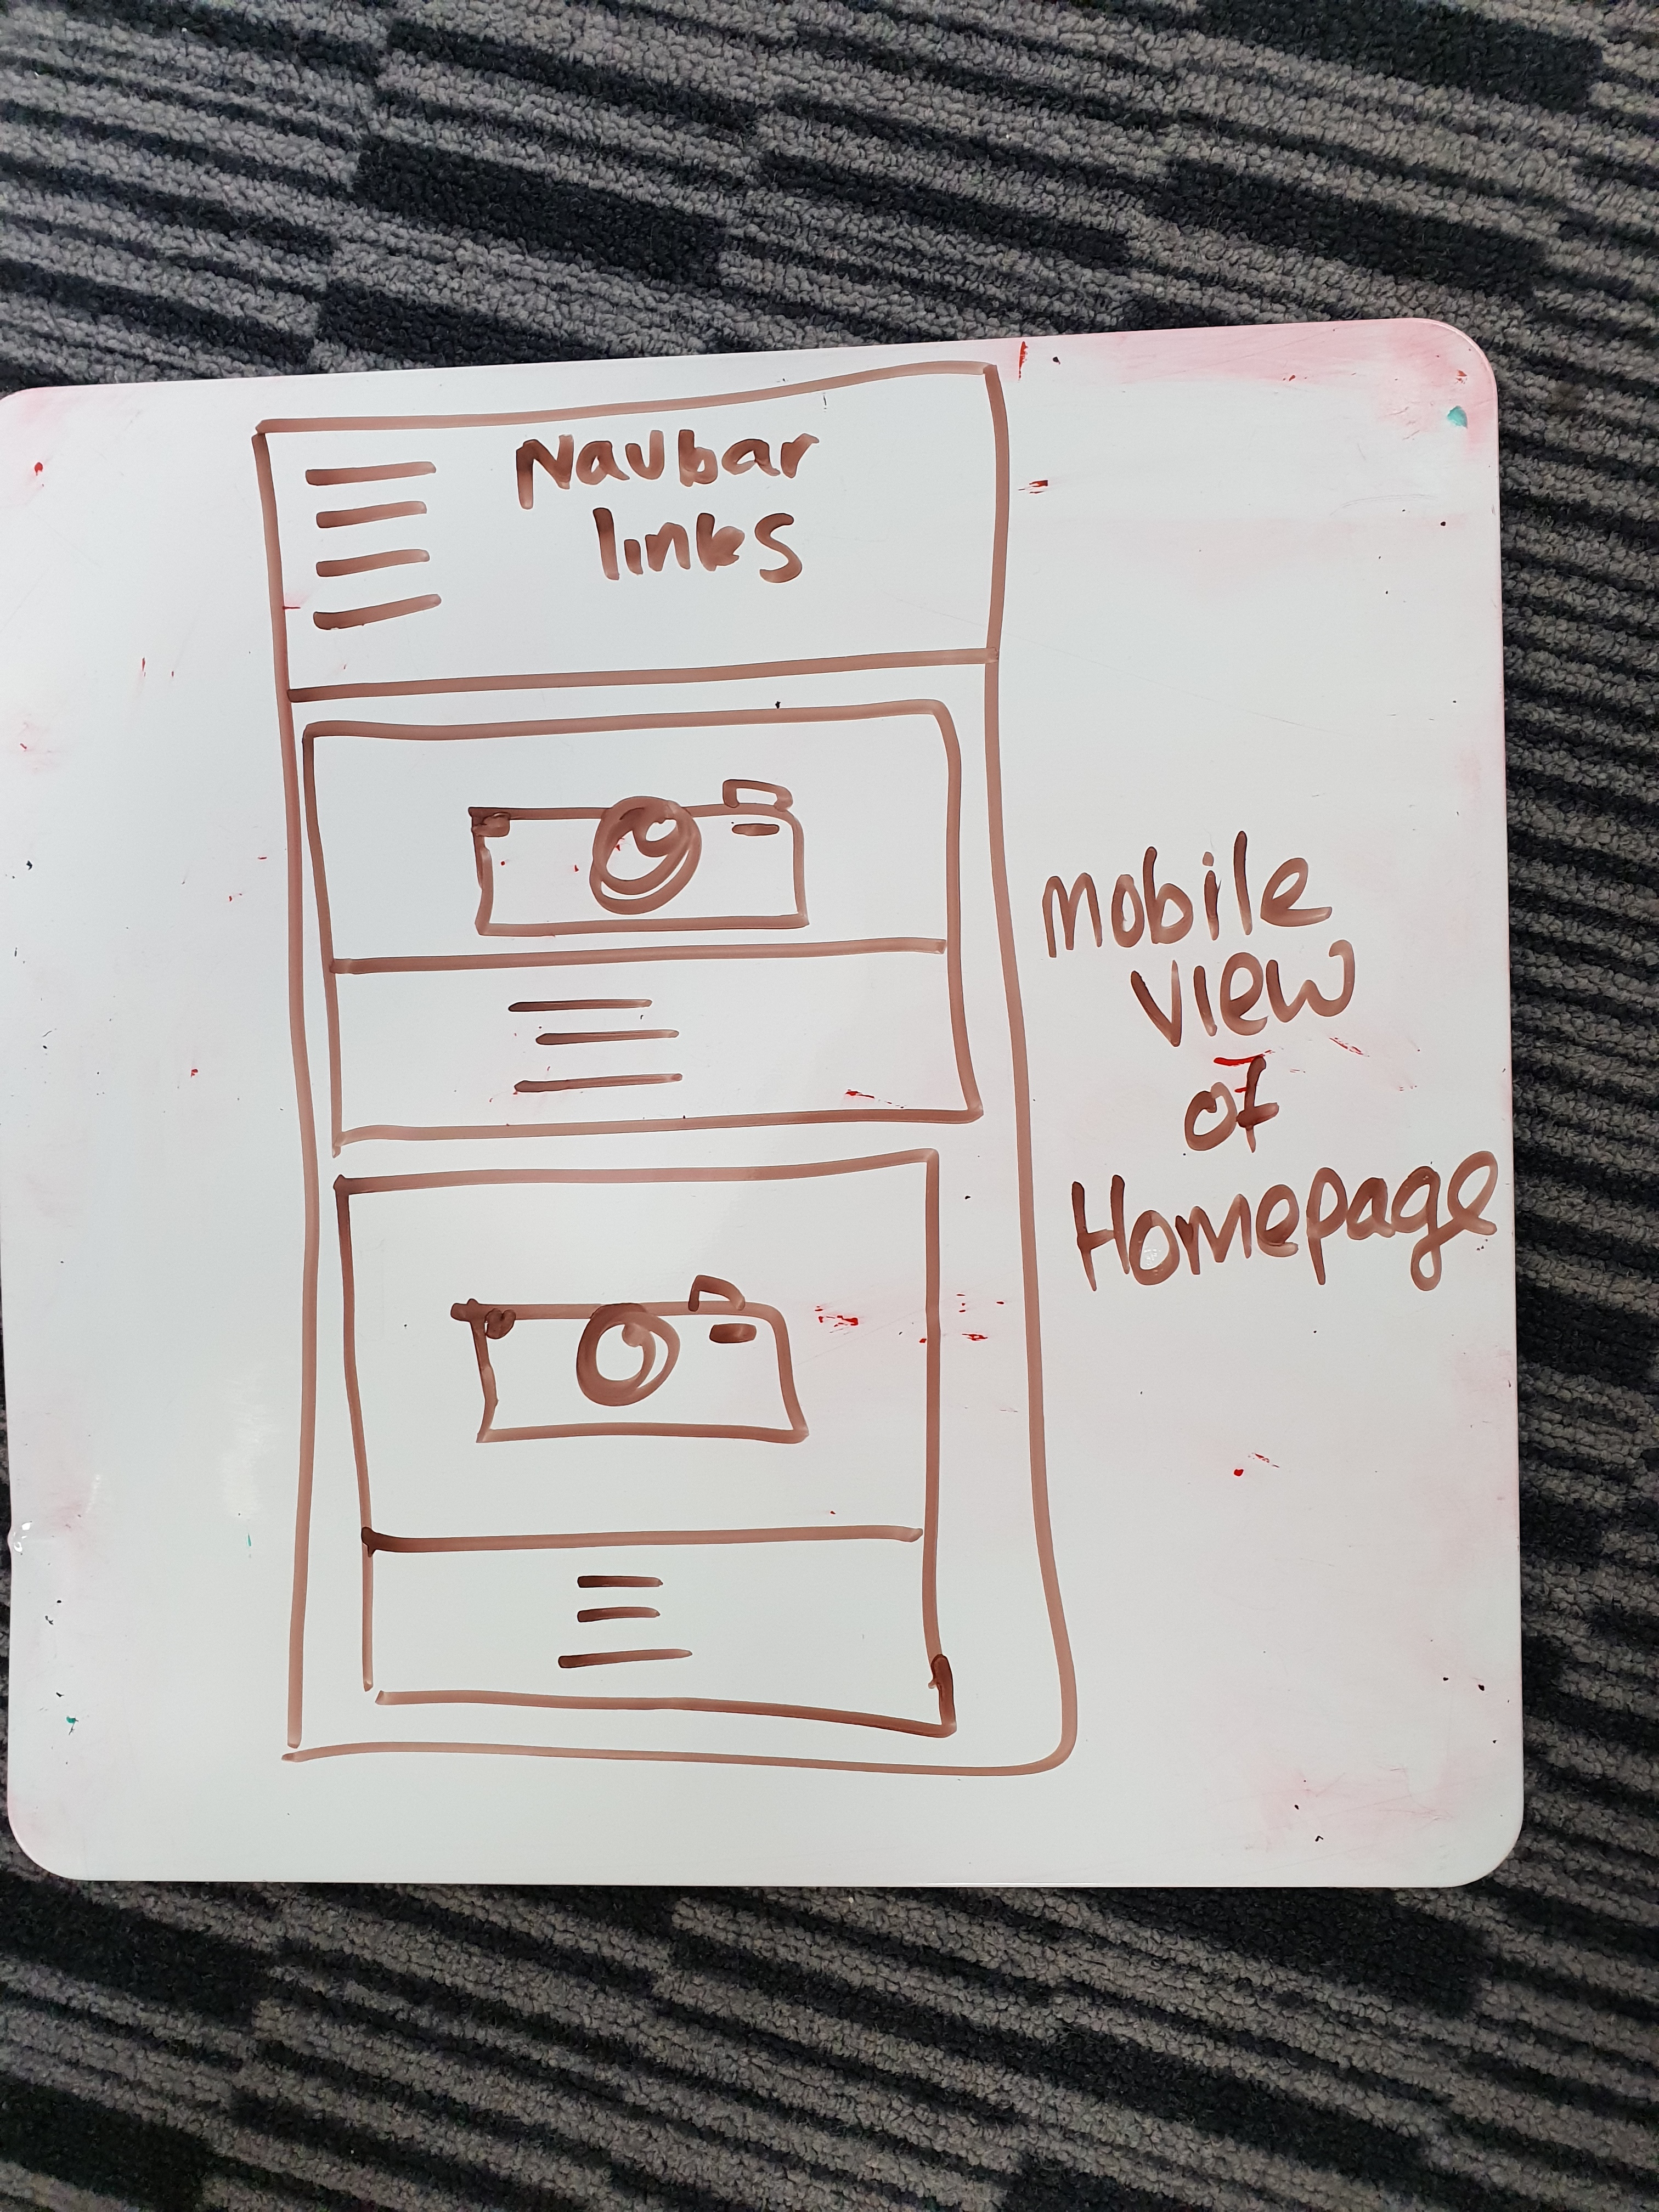 Navbar
links
mobile
view
of
Homepage